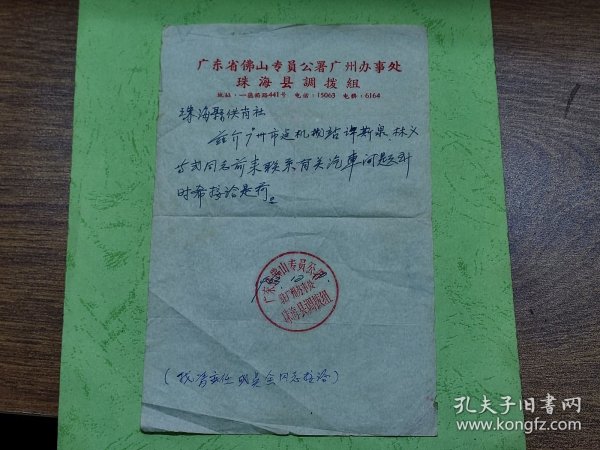 广东省佛山专員公署广州办事处
珠海县調拨組
地址:一德西路441号 电话:15063 电掛:6164
珠海縣供肖社
茲介广州市 机械站许新泉 林义
同志前来联系有关汽車问题到
时希接洽是荷。
广东省佛山专員公署
驻广州办事处
珠海县調拨組
同志接洽)
孔夫子旧书网
www.kongfz.com